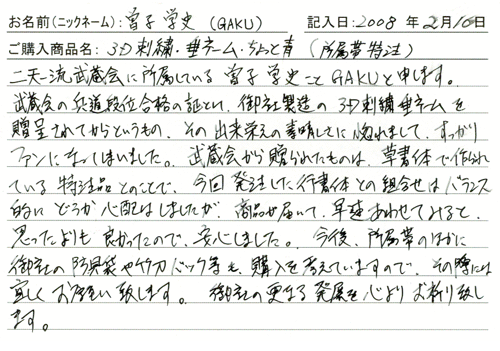 お名前(ニックネーム):曽子学史(GAKU) 記入日:2008年2月10日
ご購入商品名:3D刺繍・垂ネーム・ちょっと青(所属帯特注)
二天一流武蔵会に所属している曽子学史ことGAKUと申します。
武蔵会の兵道段位合格の証として、御社製造の3D刺繍垂ネームを
贈呈されてからというもの、その出来栄えの素晴しさに惚れまして、すっかり
ファンになってしまいました。武蔵会から贈られたものは、草書体で作られ
ている特注品とのことで、今回発注した行書体との組合せはバランス
的にどうか心配はしましたが、商品が届いて、早速あわせてみると、
思ったよりも良かったので、安心しました。今後、所属帯のほかに
御社の防具袋や竹刀バック等も、購入を考えていますので、その際には
宜しくお願い致します。御社の更なる発展を心よりお祈り致し
ます。